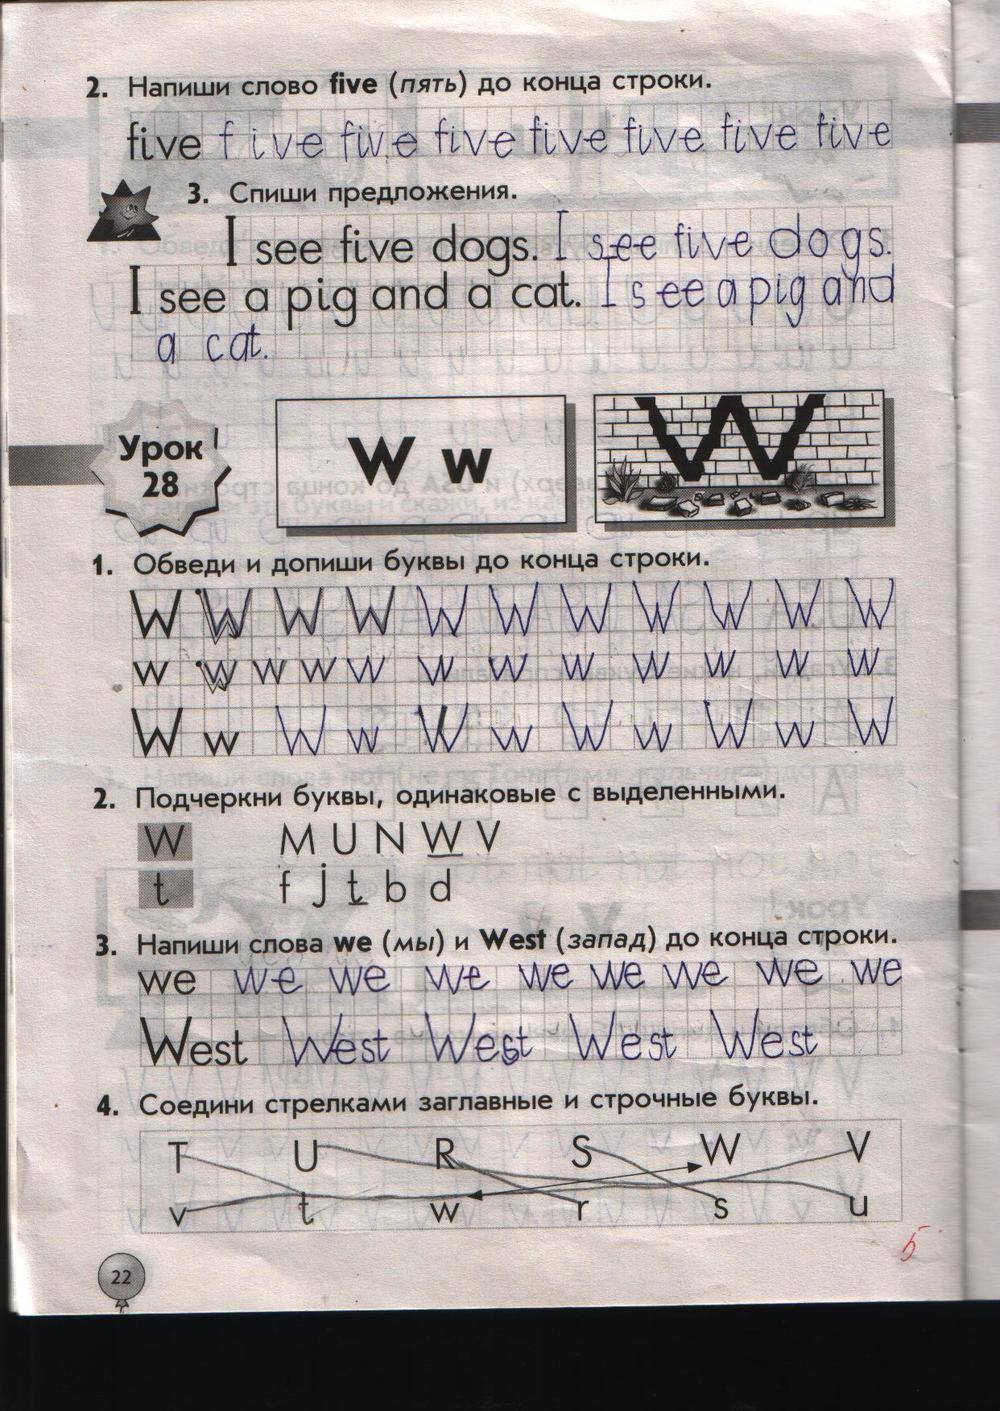 2. Напиши слово five (пять) до конца строки.
five five five five five five five five
3. Спиши предложения.
I see five dogs. I see five dogs.
I see a pig and a cat. I see a pig and
a cat.
Урок 28
W w
W
1. Обведи и допиши буквы до конца строки.
W W W W W W W W W W W
w w w w w w w w w w w w
W w W w W w W w W w W
2. Подчеркни буквы, одинаковые с выделенными.
W M U N W V
t f j t b d
3. Напиши слова we (мы) и West (запад) до конца строки.
we we we we we we we we we
West West West West West
4. Соедини стрелками заглавные и строчные буквы.
T U R S W V
v t w r s u
5
22